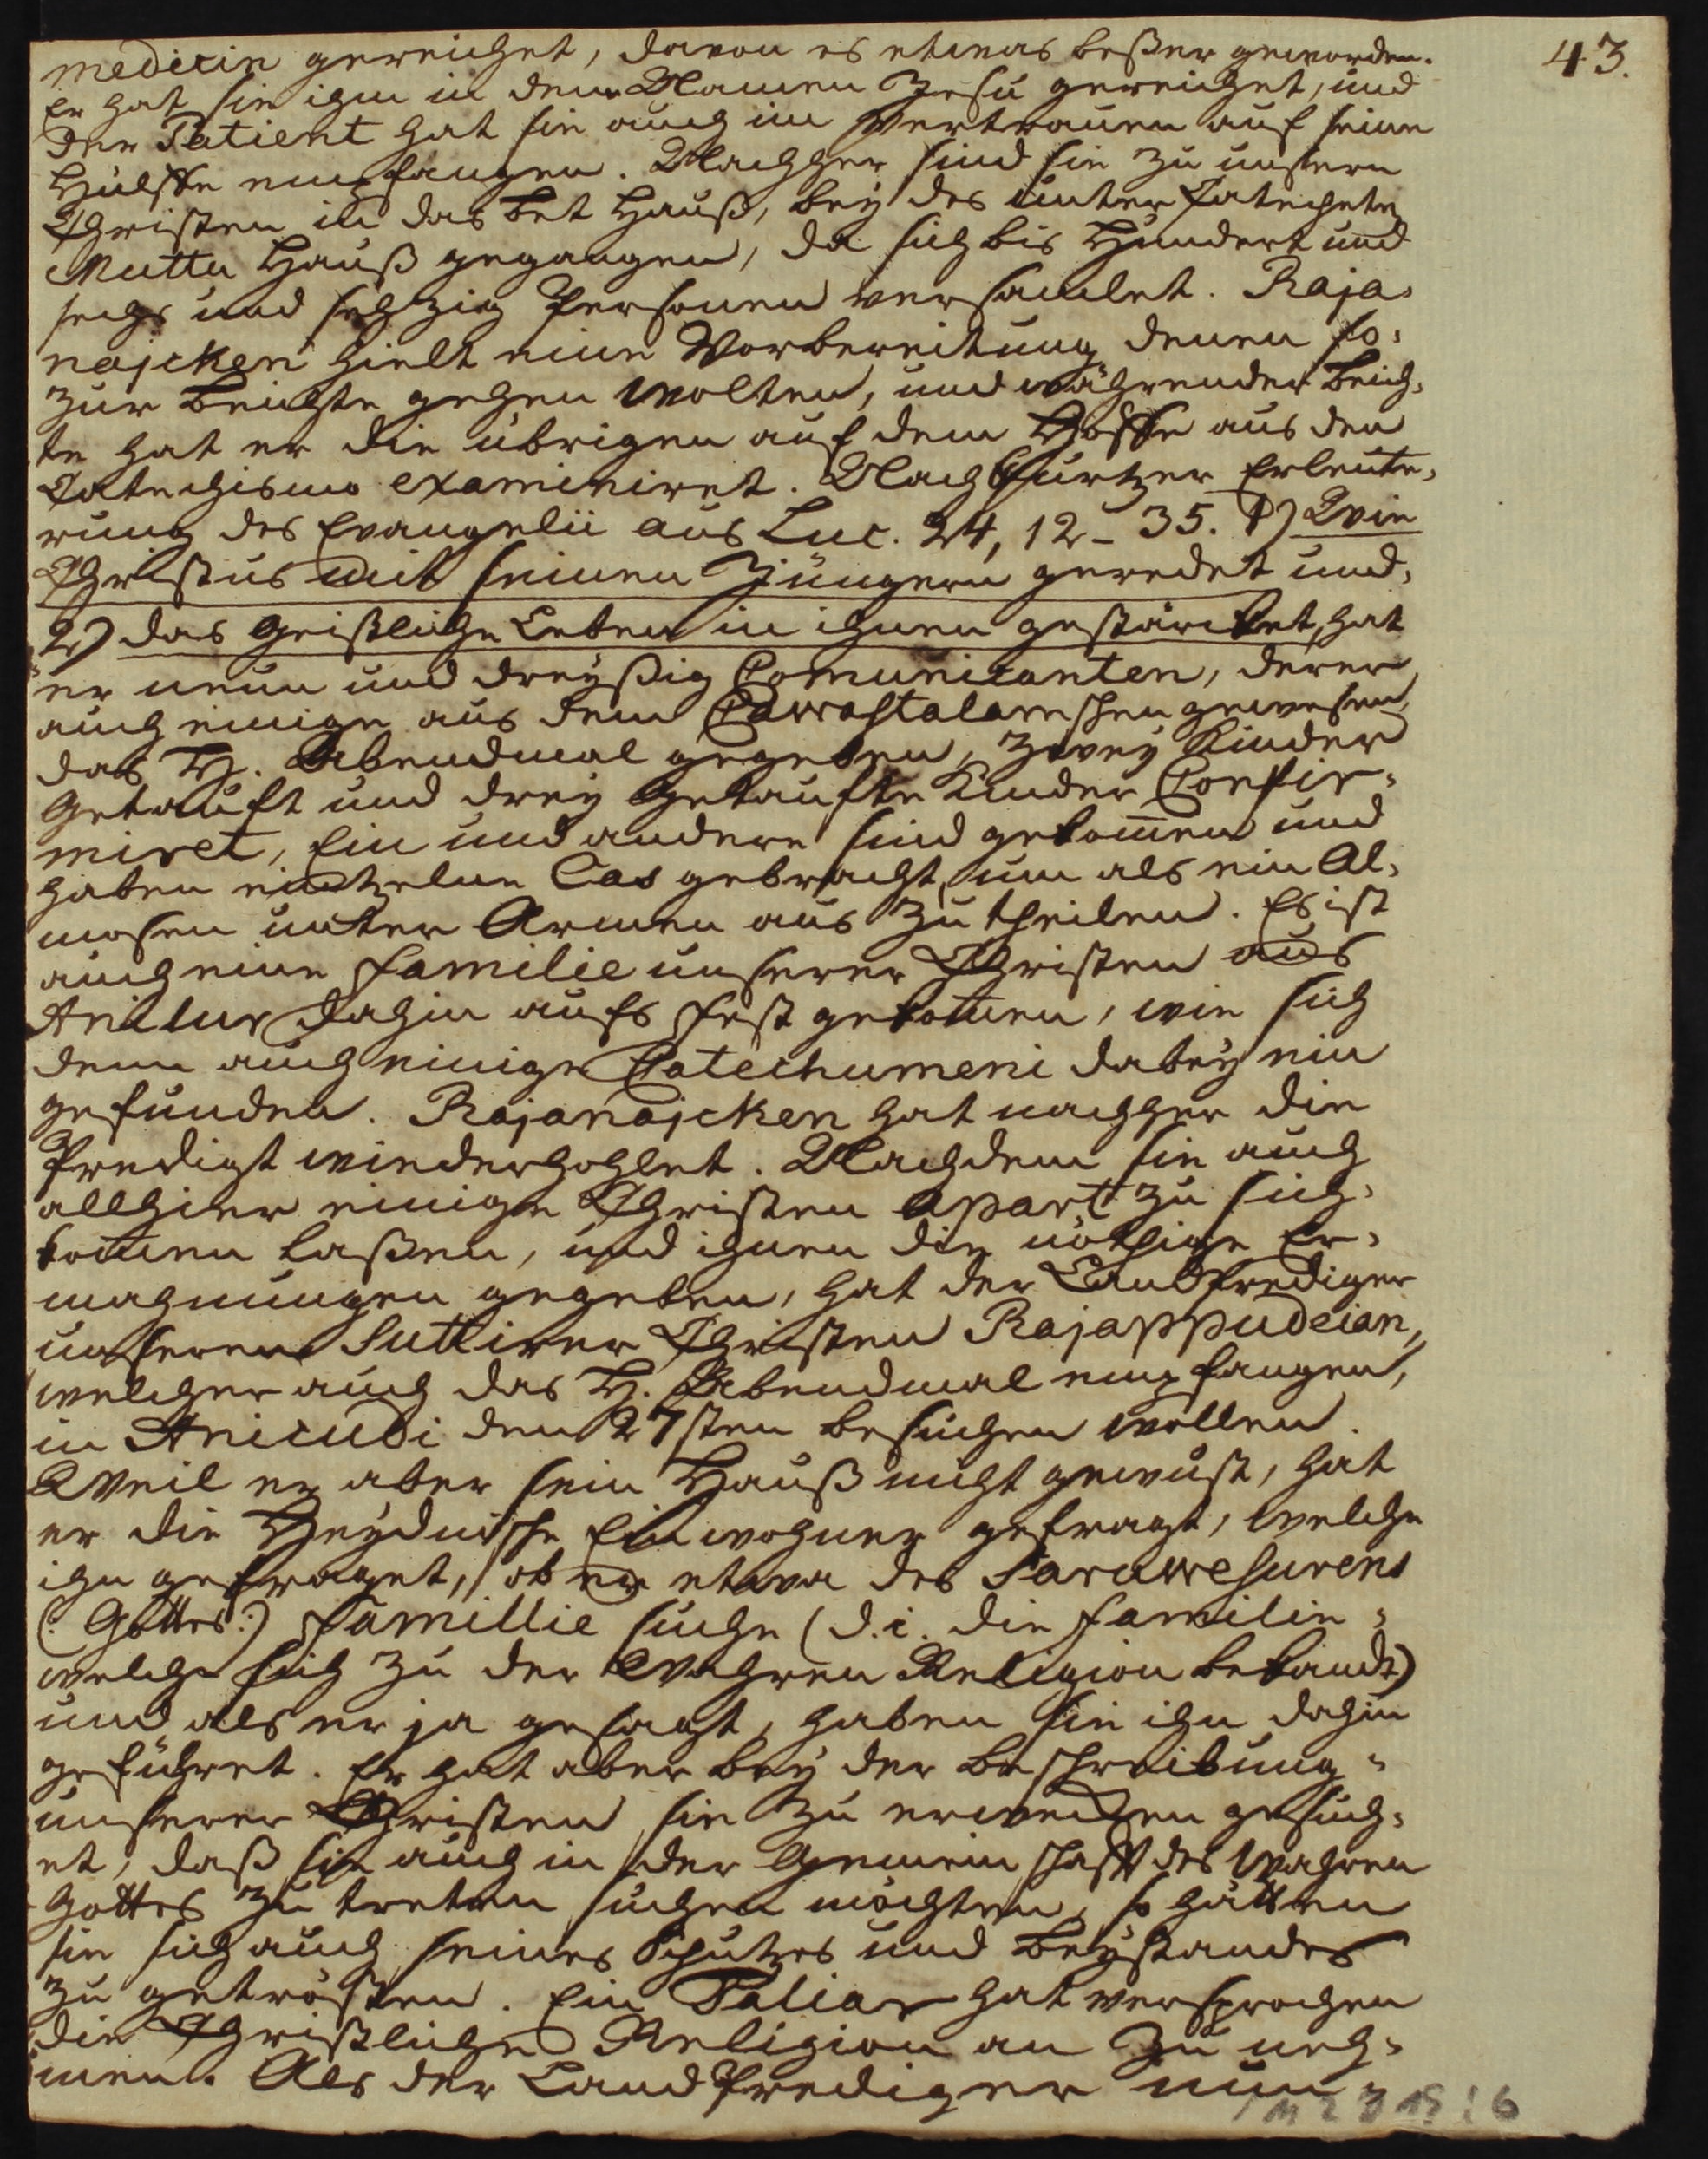 43.
medicin gereichet, davon es etwas beßer geworden.
Er hat sie ihm in dem Namen Jesu gereichet, und
der Patient hat sie auch im Vertrauen auf seine
Hülffe empfangen. Nachher sind sie zu unsern
Christen in das Bet Hauß, bey des unter Catecheten
Muttu Hauß gegangen, da sich bis Hundert und
sechs und sechzig Personen versamlet. Raja-
najcken hielt eine Vorbereitung denen so-
zur Beichte gehen wolten, und währender Beich-
te hat er die übrigen auf dem Hoffe aus den
Catechismo examiniret. Nach kurtzer Erleute-
rung des Evangelii aus Luc. 24, 12-35. 1) Wie
Christus mit seinen Jüngern geredet und,
2) das geistliche Leben in ihnen gestärcket, hat
er neun und dreyßig Comunicanten, derer
auch einige aus dem schen gewesen,
das H. Abendmal gegeben, zwey Kinder
getaufft und drey getauffte Kinder Confir-
miret, Ein und andere sind gekom̄en und
haben eintzelne Cas gebracht, um als ein Al-
mosen unter Armen aus zu theilen. Es ist
auch eine Familie unserer Christen aus
dahin aufs Fest gekom̄en, wie sich
denn auch einige Catechumeni dabey ein
gefunden. Rajanajcken hat nachher die
Predigt wiederhohlet. Nachdem sie auch
allhier einige Christen apart zu sich-
kom̄en laßen, und ihnen die nöthige Er-
mahnungen gegeben, hat der Landprediger
unseren Suttirer Christen Rajappudeian,
welcher auch das H. Abendmal empfangen,
in Anicudi den 27sten besuchen wollen.
Weil er aber sein Hauß nicht gewust, hat
er die Heydnische Einwohner gefragt, welche
ihn gefraget, ob er etwa des Parawesurens
(: Gottes :) Famillie suche (d. i. die Familie-
welche sich zu der Wahren Religion bekandt)
und als er ja gesagt, haben sie ihn dahin
geführet. Er hat aber bey der Beschreibung-
unserer Christen sie zu erwecken gesuch-
et, daß sie auch in der Gemeinschafft des Wahren
Gottes zu treten suchen möchten, so hätten
sie sich auch seines Schutzes und Beystandes
zu getrösten. Ein Paliar hat versprochen
die Christliche Religion an zu neh-
men. Als der Landprediger nun-